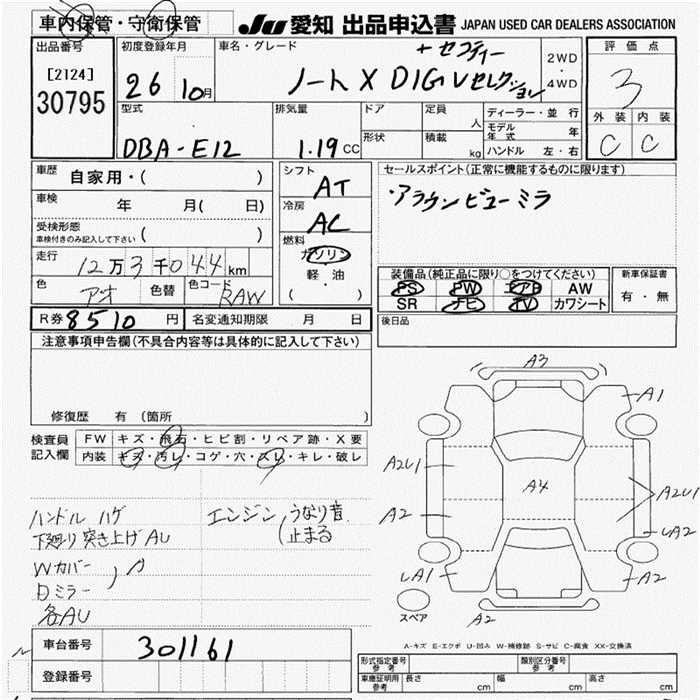 車内保管・守衛保管
JU 愛知 出品申込書 JAPAN USED CAR DEALERS ASSOCIATION
出品番号
[2124]
30795
初度登録年月
26 10月
車名・グレード
+セフティー
ノート X DIG Vセレクション
2WD
・
4WD
評価点
3
外装 内装
C C
型式
DBA-E12
排気量
1.19 CC
ドア
形状
定員 人
積載 kg
ディーラー・並行
モデル年式 年
ハンドル 左・右
車歴 自家用・( )
車検 年 月( 日)
受検形態
車検付きのみ記入して下さい ( )
走行 12万3千044km
色 アオ 色替 色コード RAW
シフト
AT
冷房
AC
燃料
ガソリン
軽・油
( )
セールスポイント(正常に機能するものに限ります)
・アラウンビューミラ
装備品(純正品に限り○をつけてください)
PS PW エアB AW
SR ナビ TV カワシート
新車保証書
有・無
R券 8510 円 名変通知期限 月 日
後日品
注意事項申告欄(不具合内容等は具体的に記入して下さい)
修復歴 有 (箇所 )
検査員
記入欄
FW キズ・飛石・ヒビ割・リペア跡・X要
内装 キズ・汚レ・コゲ・穴・スレ・キレ・破レ
ハンドル ハゲ
下廻り突き上げAU
Wカバー
Dミラー
各AU
エンジン うなり音
(止まる
A3
A1
A2U1
A2
A4
A2U1
LA2
LA1
A2
A2
スペア
A-キズ E-エクボ U-凹み W-補修跡 S-サビ C-腐食 XX-交換済
車台番号 301161
登録番号
型式指定番号
参考
類別区分番号
参考
車庫証明用
参考
長さ cm 幅 cm 高さ cm